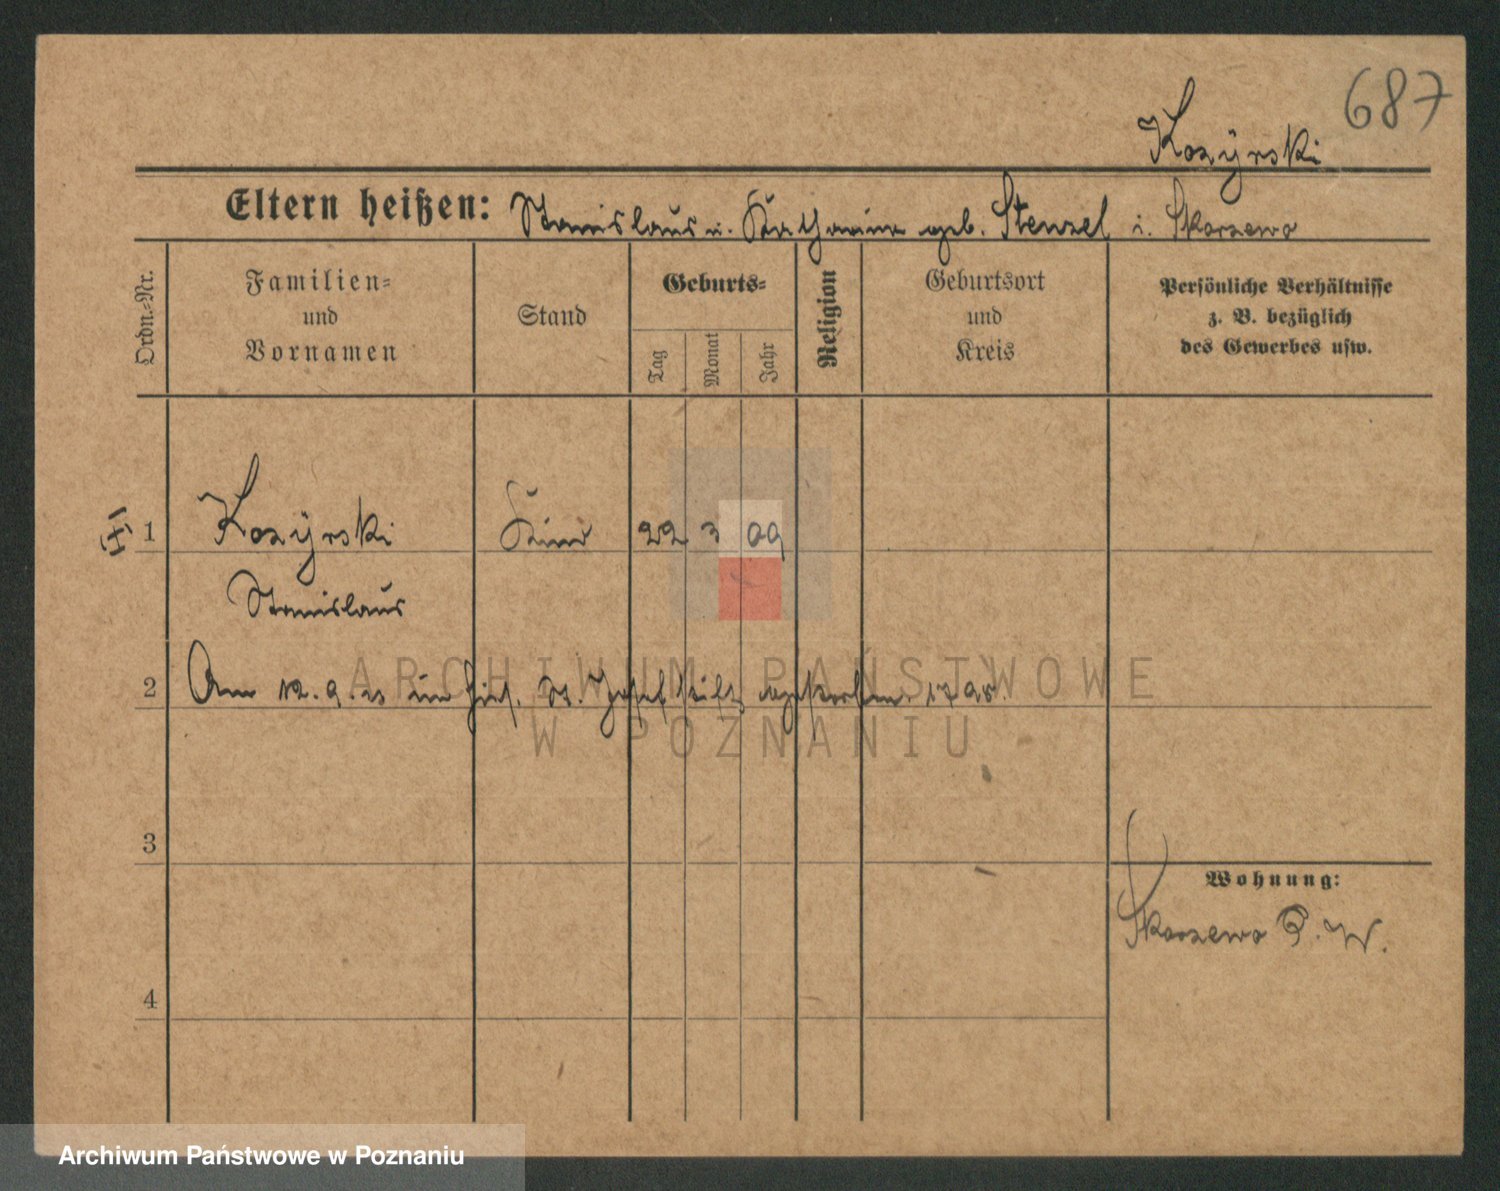 687
Kozyrski
Eltern heißen: Stanislaus u. Katharina geb. Stenzel i. Skorzewo
Ordn.-Nr.
Familien-
und
Vornamen
Stand
Geburts-
Tag
Monat
Jahr
Religion
Geburtsort
und
Kreis
Persönliche Verhältnisse
z. B. bezüglich
des Gewerbes usw.
1 Kozÿrski Kind 22 3 09
Stanislaus
2 Am 12. 9. im hies. St. Josefstift gestorben.
ARCHIWUM PAŃSTWOWE
W POZNANIU
3
Wohnung:
Skorzewo P. W.
4
Archiwum Państwowe w Poznaniu